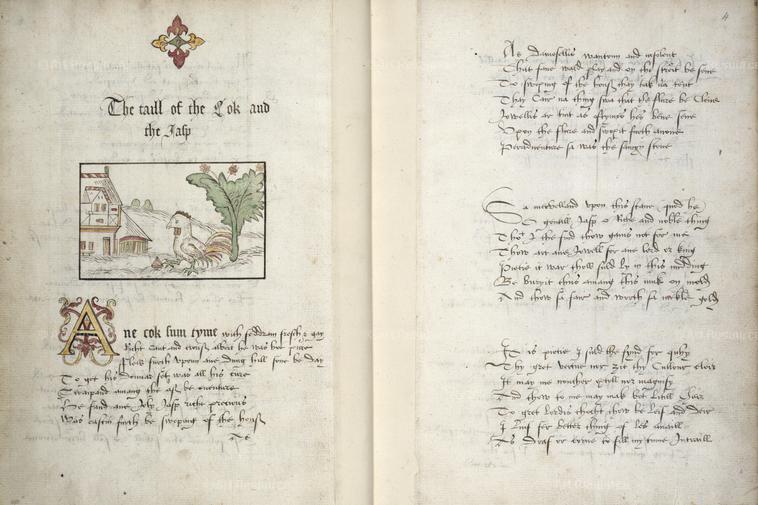 The taill of the Cok and
the Jasp
Ane cok sum tyme with feddram fresch & gay
Richt Cant and crous albeit he was bot pure
Flew furth upoun ane dung hill sone be day
To get his Dennar set was all his cure
Scraipand amang the ass be aventure
He fand ane Joly Jasp richt precious
Was castin furth be sweping of the hous
As
4
As Damosellis wantoun and insolent
That fane wald play and on the streit be sene
To sweping of the hous thay tak na tent
Thay Cair na thing swa that the flure be Clene
Jowellis ar tint as oftymes hes bene sene
Upon the flure and swopit furth anone
Peradventure sa was the samyn stone
Sa mervelland upon this stane quod he
O gentill Jasp O Riche and noble thing
Thocht I the find thow ganis not for me
Thow art ane Jowell for ane lord or king
Pietie it war thow suld ly in this midding
Be buryit thus amang this muk on mold
And thow sa fair and worth sa mekle gold
It is pietie I suld the fynd for quhy
Thy gret vertew nor yit thy Cullour cleir
It may me nouther extoll nor magnify
And thow to me may mak bot Littill Cheir
To gret Lordis thocht thow be Leif and deir
I Luif fer better thing of Les availl
As Draf or corne to fill my tume Intraill